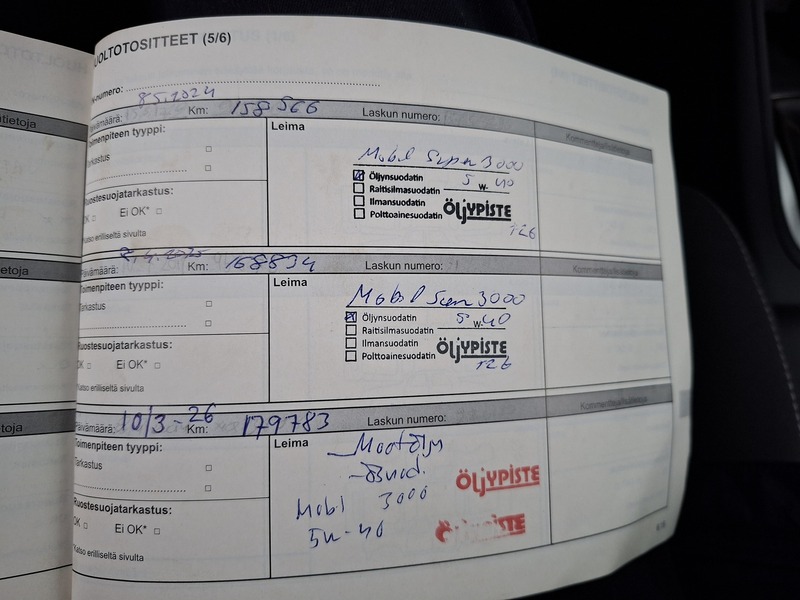 UOLTOTOSITTEET (5/6)
-numero:
8.5.2024
Päivämäärä: Km: 158566 Laskun numero:
Kommentteja/huomioita
Toimenpiteen tyyppi:
Tarkastus
Ruostesuojatarkastus:
OK Ei OK*
Katso erilliseltä sivulta
Leima
Mobil Super 3000
Öljynsuodatin 5 W- 40
Raitisilmasuodatin
Ilmansuodatin
Polttoainesuodatin ÖljYPISTE
126
tietoja
Päivämäärä: 8.4.2025 Km: 168834 Laskun numero:
Toimenpiteen tyyppi:
Tarkastus
Ruostesuojatarkastus:
OK Ei OK*
Katso erilliseltä sivulta
Leima
Mobil Super 3000
Öljynsuodatin 5 W- 40
Raitisilmasuodatin
Ilmansuodatin
Polttoainesuodatin ÖljYPISTE
126
etoja
Päivämäärä: 10/3-26 Km: 179783 Laskun numero:
Kommentteja/huomioita
Toimenpiteen tyyppi:
Tarkastus
Ruostesuojatarkastus:
OK Ei OK*
Katso erilliseltä sivulta
Leima
Mobil 3000
5w-40
ÖljYPISTE
ISTE
toja